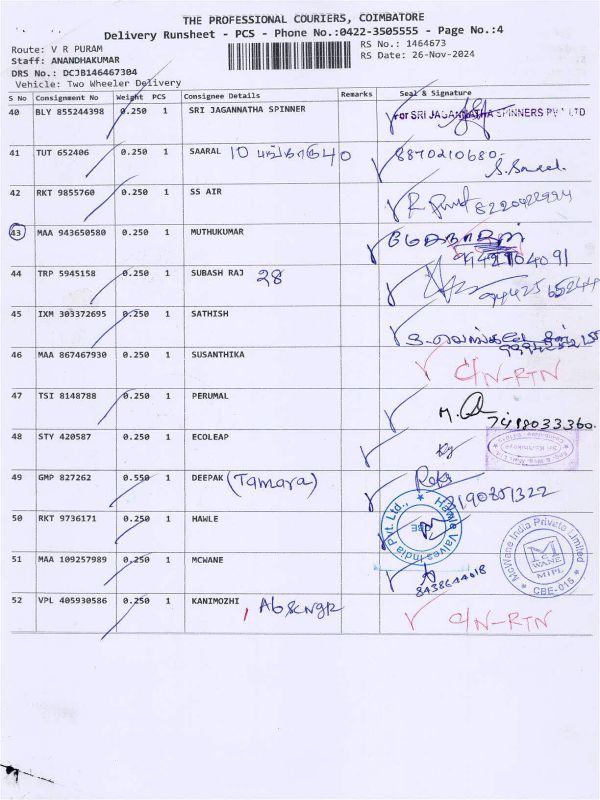 THE PROFESSIONAL COURIERS, COIMBATORE
Delivery Runsheet - PCS - Phone No.:0422-3505555 - Page No.:4
Route: V R PURAM
RS No.: 1464673
Staff: ANANDHAKUMAR
RS Date: 26-Nov-2024
DRS No.: DCJB146467304
Vehicle: Two Wheeler Delivery
S No Consignment No Weight PCS Consignee Details Remarks Seal & Signature
40 BLY 855244398 0.250 1 SRI JAGANNATHA SPINNER For SRI JAGANNATHA SPINNERS PVT LTD
41 TUT 652406 0.250 1 SAARAL 10 8870210680
42 RKT 9855760 0.250 1 SS AIR
43 MAA 943650580 0.250 1 MUTHUKUMAR
44 TRP 5945158 0.250 1 SUBASH RAJ 28
45 IXM 303372695 0.250 1 SATHISH
46 MAA 867467930 0.250 1 SUSANTHIKA C/N-RTN
47 TSI 8148788 0.250 1 PERUMAL
48 STY 420587 0.250 1 ECOLEAP
49 GMP 827262 0.550 1 DEEPAK (Tamara)
50 RKT 9736171 0.250 1 HAWLE Hawle Valves India Pvt. Ltd., CBE
51 MAA 109257989 0.250 1 MCWANE McWane India Private Limited MCWANE MIPL CBE-015
52 VPL 405930586 0.250 1 KANIMOZHI C/N-RTN